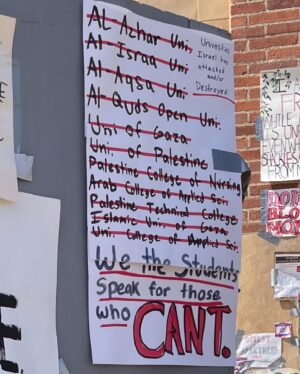 Al-Azhar Uni.
Al-Israa Uni
Al-Aqsa Uni
Al-Quds Open Uni.
Uni of Gaza
Uni. of Palestine
Palestine College of Nursing
Arab College of Applied Sci.
Palestine Technical College
Islamic Uni. of Gaza
Uni. College of Applied Sci
Universities
Israel has
attacked
and/or
Destroyed.
We the Students
Speak for those
who CANT.
UN
EVEN
FROM
BLO
DIVEST